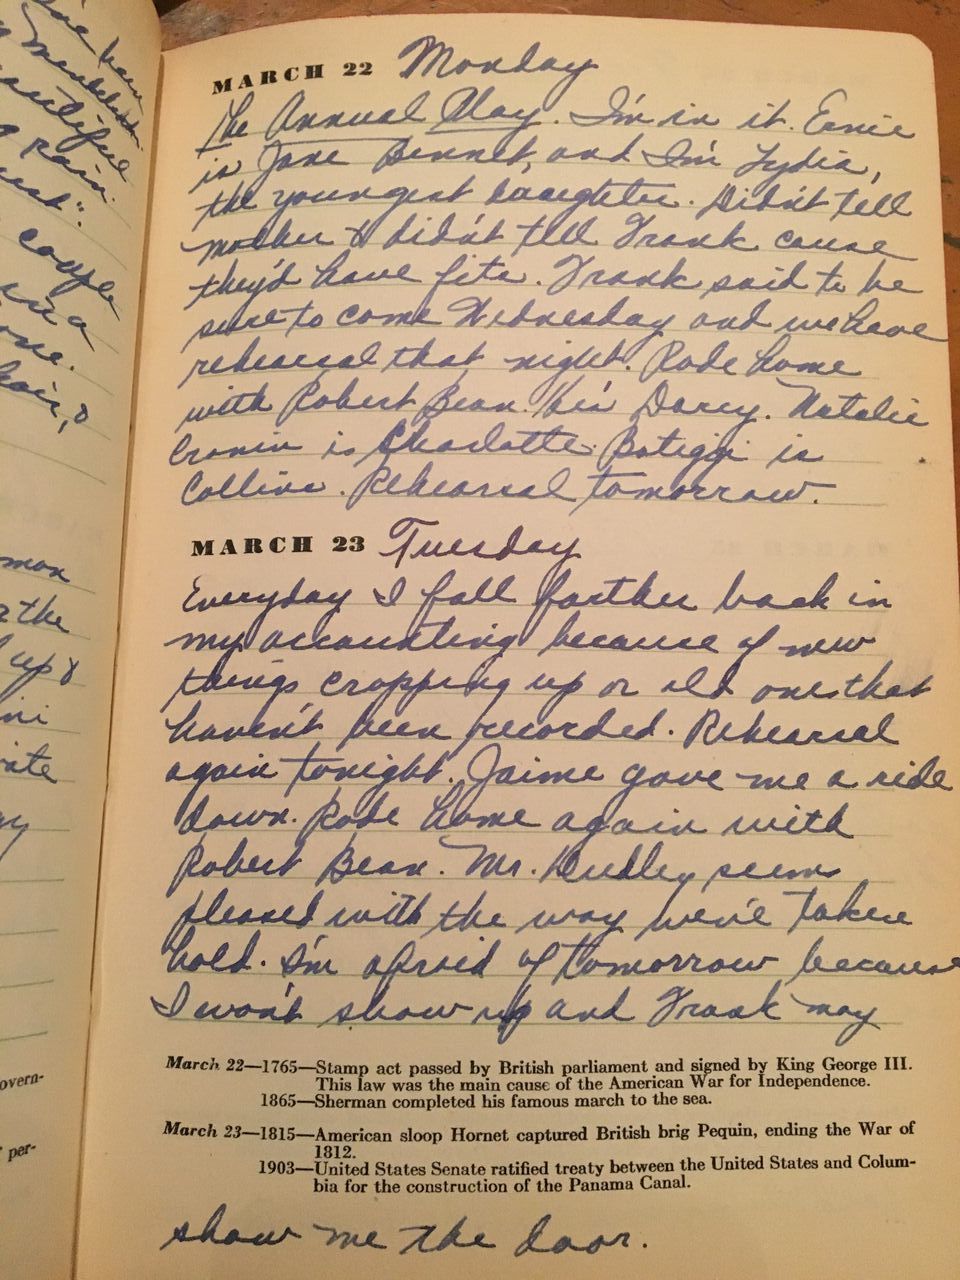 MARCH 22 Monday
The Annual Play. I'm in it. Ernie
is Jane Bennet, and I'm Lydia,
the youngest daughter. Didn't tell
mother & didn't tell Frank cause
they'd have fits. Frank said to be
sure to come Wednesday and we have
rehearsal that night. Rode home
with Robert Bean. He's Darcy. Natalie
Cronin is Charlotte. is
Collins. Rehearsal tomorrow.
MARCH 23 Tuesday
Everyday I fall farther back in
my accounting because of new
things cropping up or old ones that
haven't been recorded. Rehearsal
again tonight. Jaime gave me a ride
down. Rode home again with
Robert Bean. Mr. seems
pleased with the way we've taken
hold. I'm afraid of tomorrow because
I won't show up and Frank may
March 22—1765—Stamp act passed by British parliament and signed by King George III.
This law was the main cause of the American War for Independence.
1865—Sherman completed his famous march to the sea.
March 23—1815—American sloop Hornet captured British brig Pequin, ending the War of
1812.
1903—United States Senate ratified treaty between the United States and Colum-
bia for the construction of the Panama Canal.
show me the door.